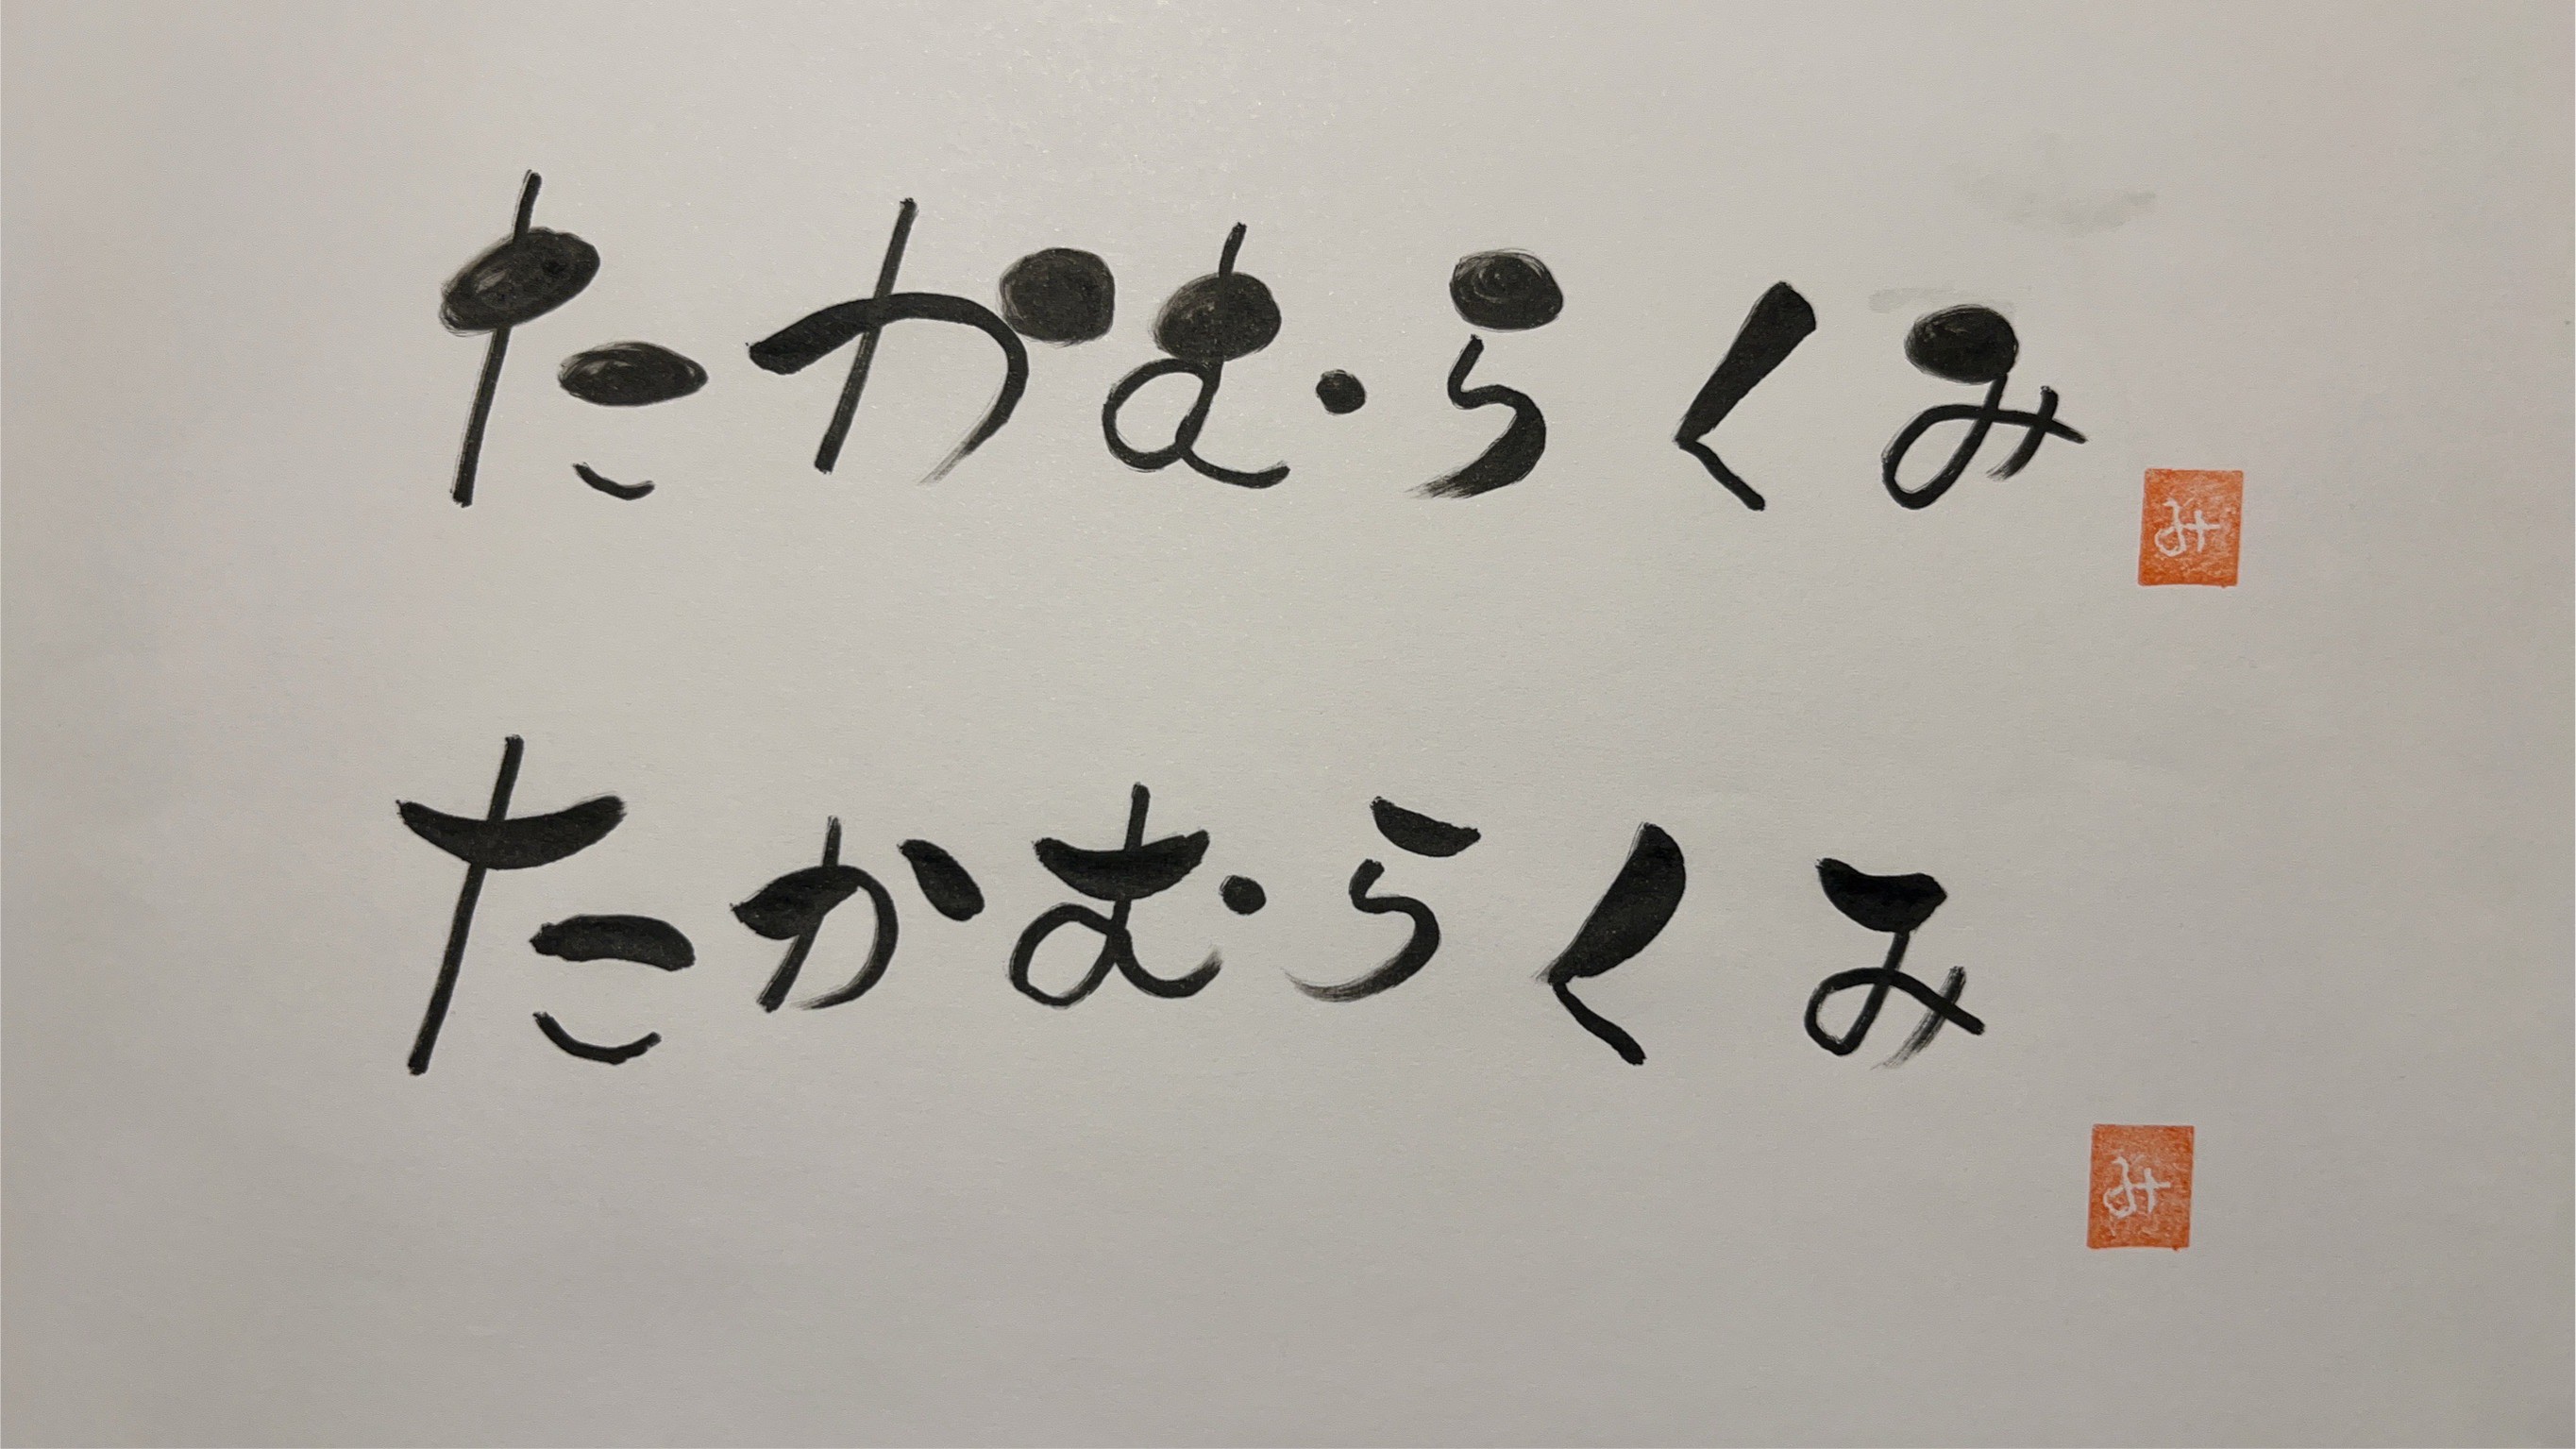 たかむらくみ
み
たかむらくみ
み